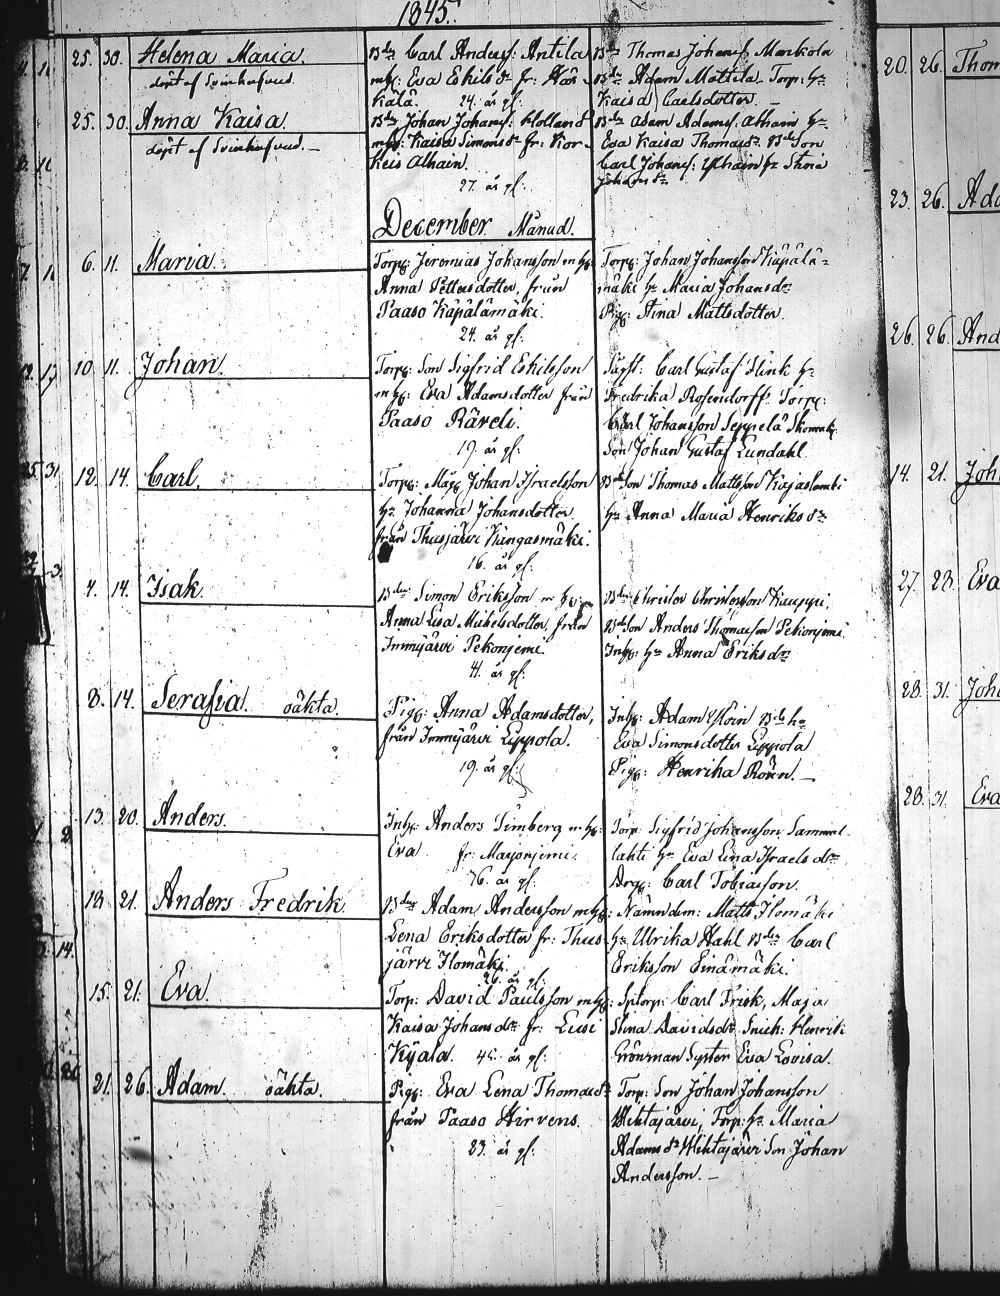 1845.
25. 30. Helena Maria.
döpt af Svinhufvud.
Bdr Carl Anders: Antila
m h: Eva Eskilsdr fr: Här-
kälä. 24. år gl:
Bdr Thomas Johans: Markola
Bdr Adam Mattila Torp: h:
Kaisa Carlsdotter. —
25. 30. Anna Kaisa.
döpt af Svinhufvud. —
Bdr Johan Johans:
m h: Kaisa Simonsdr fr: Kor-
keis Alhain.
27. år gl:
Bdr Adam Adams: Alhain h:
Eva Kaisa Thomasdr Bdr Son
Carl Johans: Ylhain h: Stina
Johansdr
December Månad.
6. 11. Maria.
Torp: Jeremias Johansson m h:
Anna Pettersdotter, från
Paaso Käpälämäki.
24. år gl:
Torp: Johan Johansson Käpälä-
mäki h: Maria Johansdr
Pig: Stina Mattsdotter.
10. 11. Johan.
Torp: Son Sigfrid Eskilsson
m h: Eva Adamsdotter från
Paaso Räveli.
19. år gl:
Carl Gustaf Flink h:
Fredrika Rosendorff. Torp:
Carl Johansson Seppelä
Son Johan Gustaf Lundahl.
12. 14. Carl.
Torp: Måg Johan Israelsson
h: Johanna Johansdotter
från Thusjärvi Kangasmäki.
16. år gl:
Bd Son Thomas Mattsson Kajaslambi
h: Anna Maria Henriksdr
4. 14. Isak.
Bdr Simon Eriksson m h:
Anna Lisa Mickelsdotter, från
Immjärvi Pekonjemi.
41. år gl:
Bdr Christer Christersson Kauppi,
Bd Son Anders Thomasson Pekonjemi
Inh: h: Anna Eriksdr
8. 14. Serafia. oäkta.
Pig: Anna Adamsdotter,
från Immjärvi Eppola.
19. år gl:
Inh: Adam Yloin Bds h:
Eva Simonsdotter Eppola
Pig: Henrika Rönn. —
13. 20. Anders.
Inh: Anders Limberg m h:
Eva fr: Marjonjemi.
76. år gl:
Torp: Sigfrid Johansson Sammal-
lahti h: Eva Lena Israelsdr
Dreg: Carl Tobiasson.
18. 21. Anders Fredrik
Bdr Adam Andersson m h:
Lena Eriksdotter fr: Thus-
järvi Ilomäki.
26. år gl:
Nämndem: Matts Ilomäki
h: Ulrika Stahl Bdr Carl
Eriksson Einämäki.
15. 21. Eva.
Torp: David Paulsson m h:
Kaisa Johansdr fr: Lusi
Kyala. 45. år gl:
Sptorp: Carl Frisk, Maja
Stina Davidsdr Snick: Henrik
Grönman Syster Eva Lovisa.
21. 26. Adam. oäkta.
Pig: Eva Lena Thomasdr
från Paaso Hirvens.
23. år gl:
Torp: Son Johan Johansson
Wehkajärvi, Torp: h: Maria
Adamsdr Wehkajärvi Son Johan
Andersson. —
20. 26. Thom
23. 26. Ada
26. 26. And
14. 21. Joh
27. 28. Eva
28. 31. Joha
28. 31. Eva